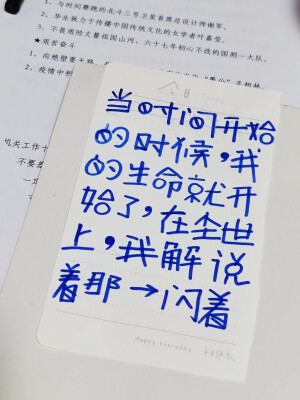 1、与时间赛跑的北斗三号卫星首席总设计师谢军。
2、毕生致力于传播中国传统文化的女学者叶嘉莹。
3、不畏艰险丈量祖国山河，六十七年初心不改的国测一大队。
★艰苦奋斗
1、向绝壁要
2、疫情中
机关工作
不要
今日
当时间开始
的时候，我
的生命就开
始了，在尘世
上，我解说
着那→闪着
Happy everyday